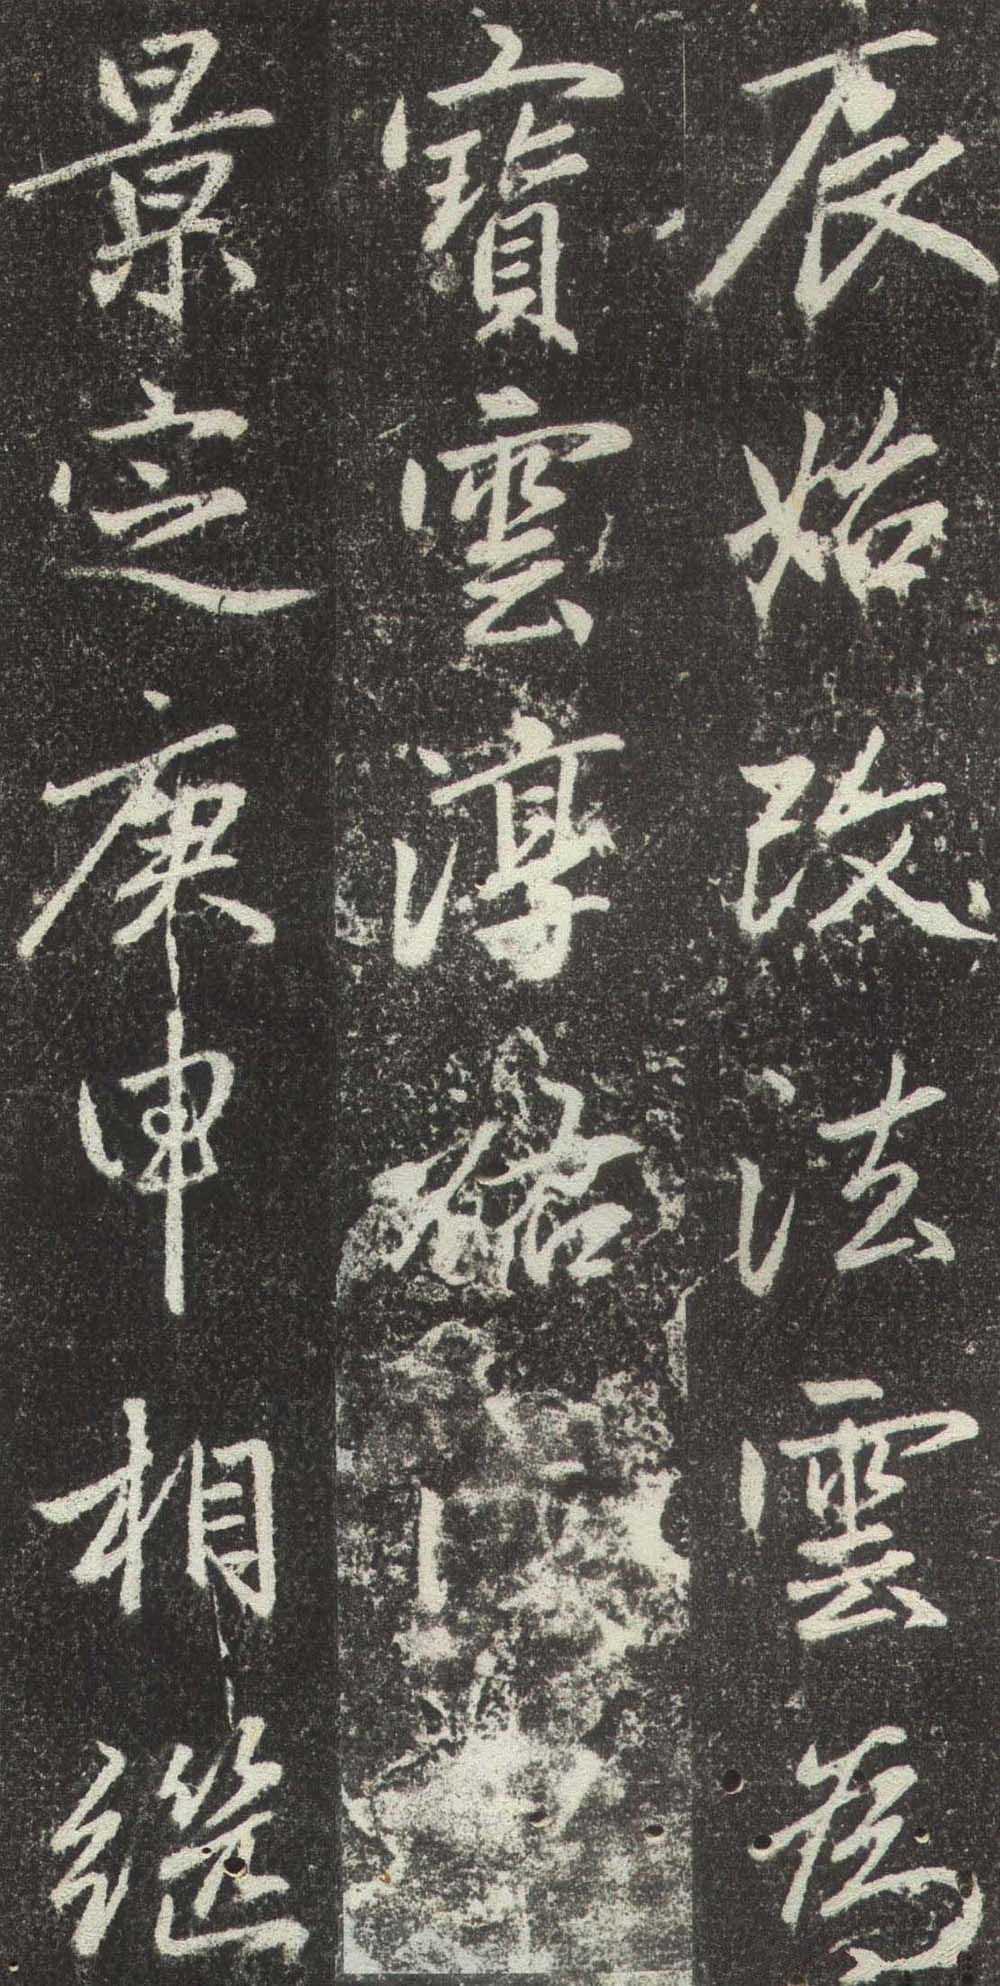 辰始改法雲爲
寶雲淳祐
景定庚申相繼